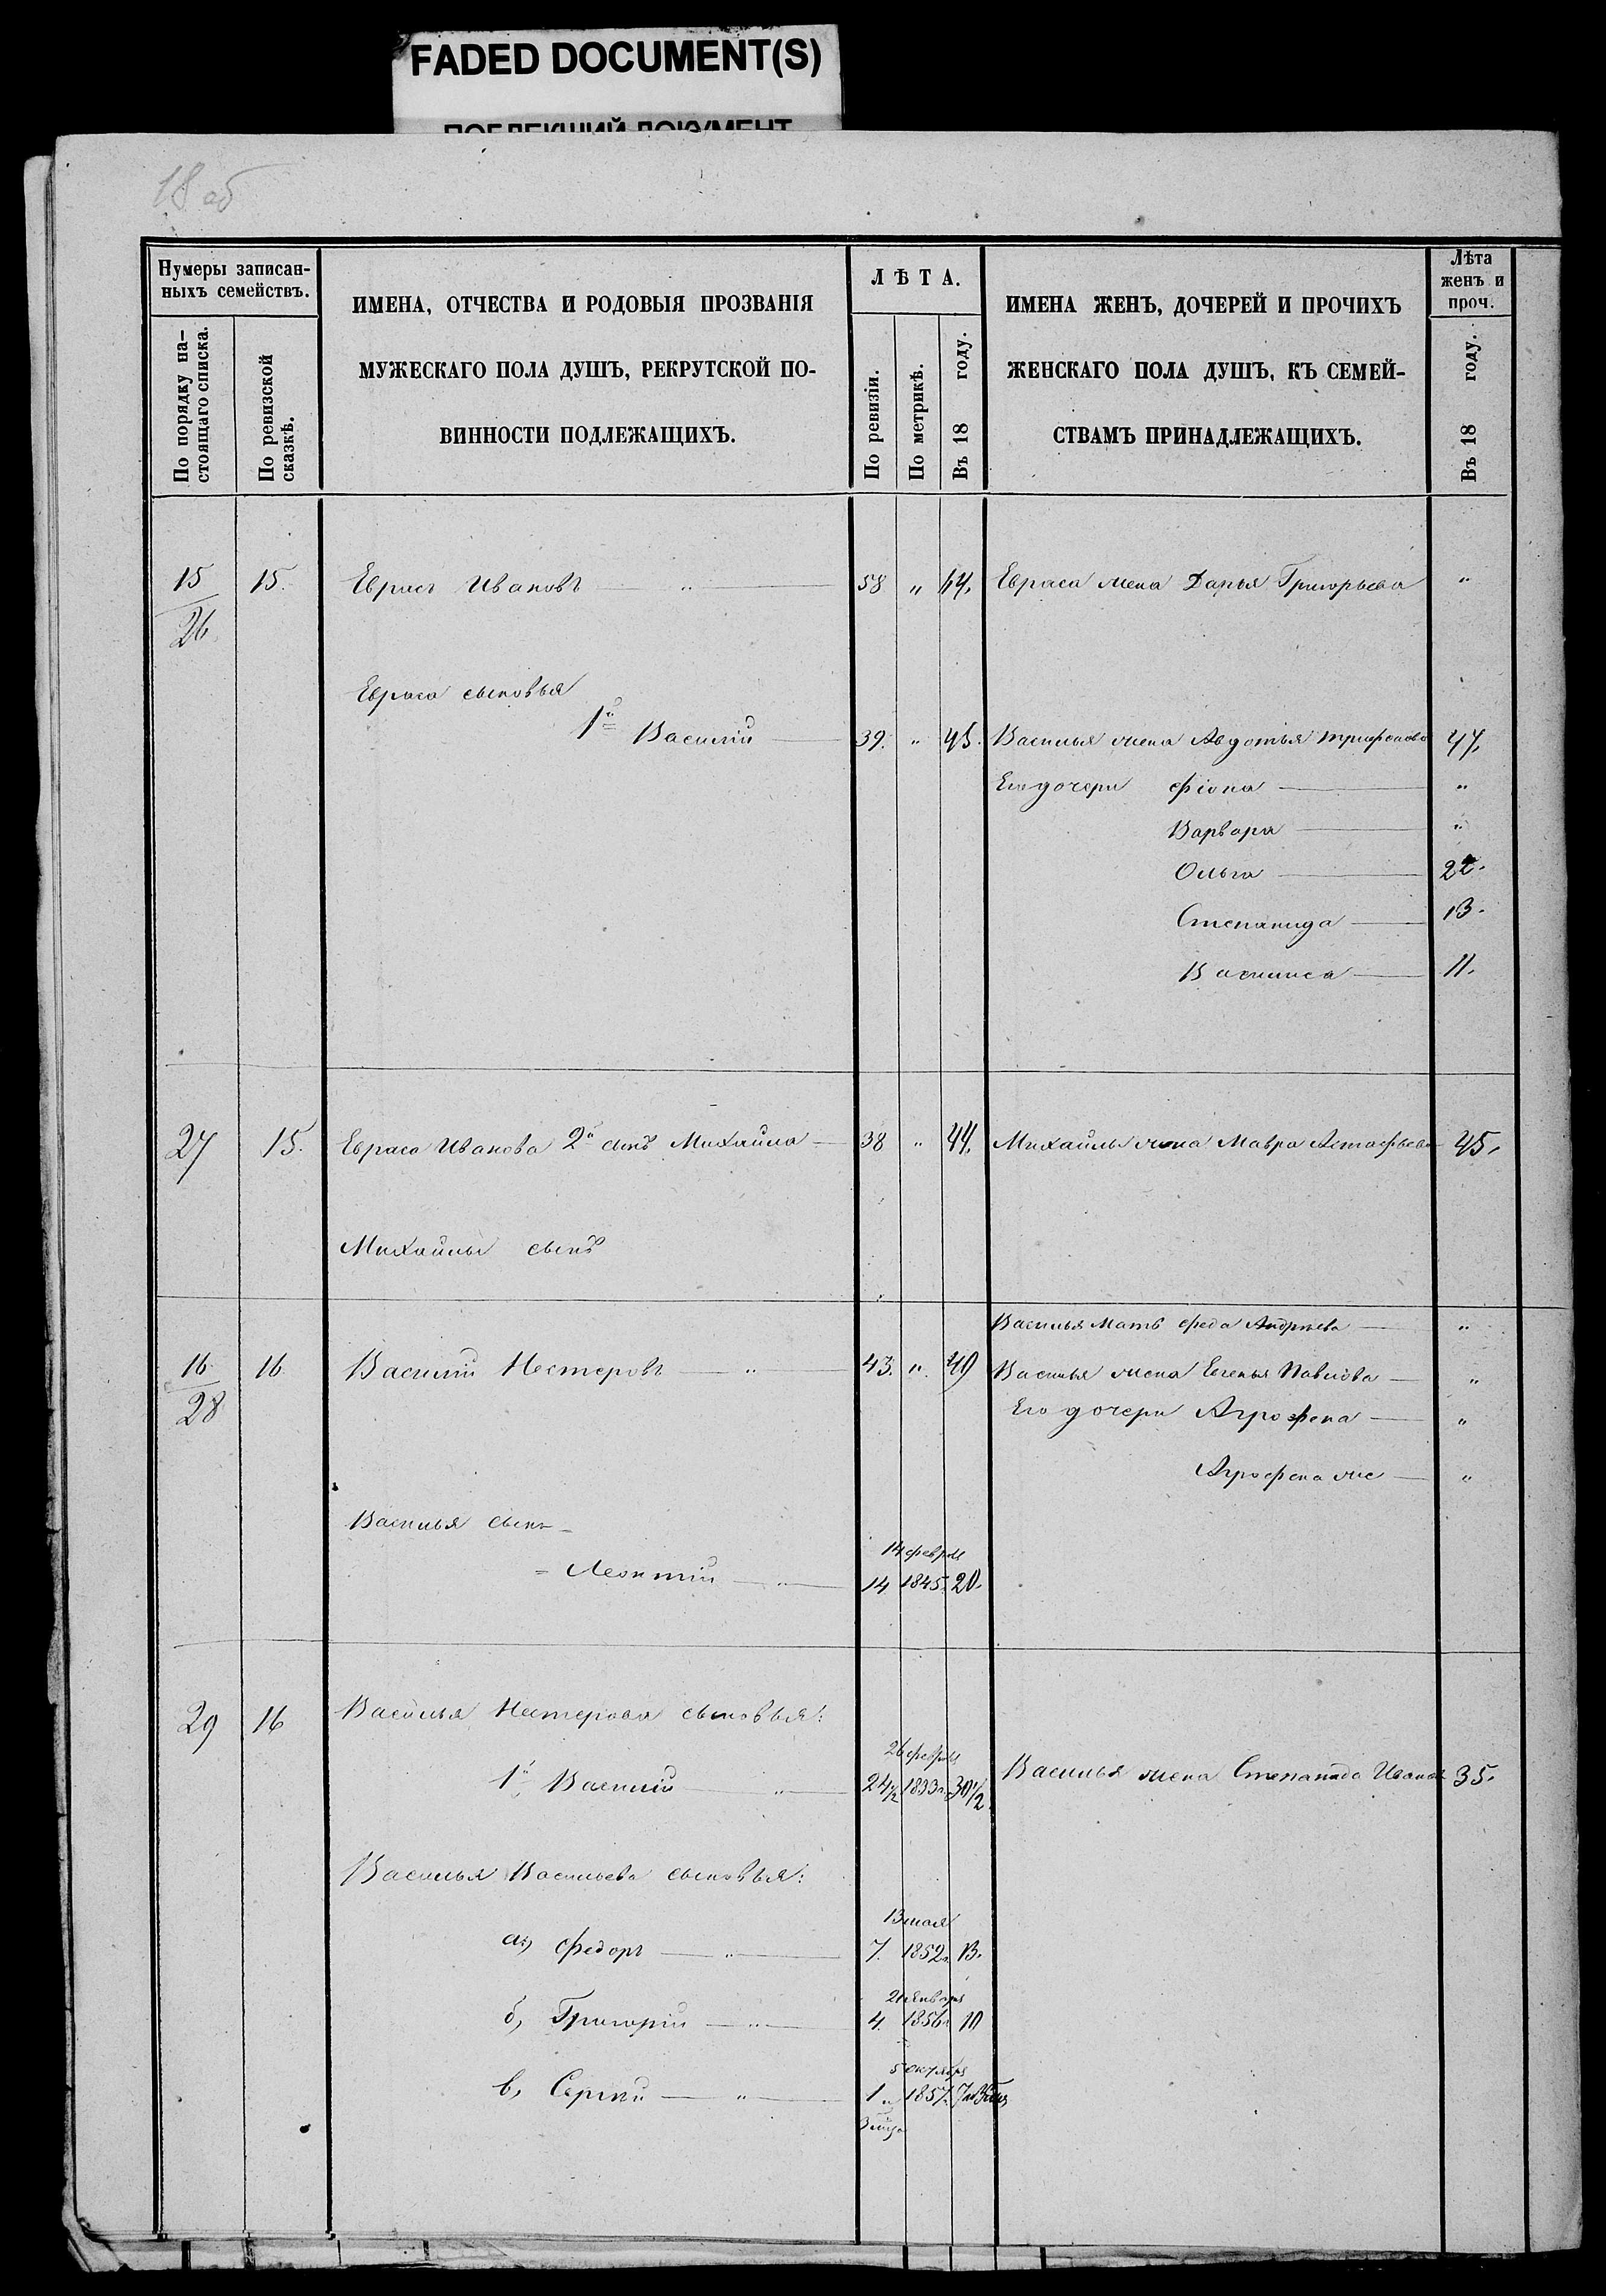 FADED DOCUMENT(S)
ПОБЛЕКШИЙ ДОКУМЕНТ
18 об
Нумеры записан-
ныхъ семействъ.
По порядку на-
стоящаго списка.
По ревизской
сказкѣ.
ИМЕНА, ОТЧЕСТВА И РОДОВЫЯ ПРОЗВАНІЯ
МУЖЕСКАГО ПОЛА ДУШЪ, РЕКРУТСКОЙ ПО-
ВИННОСТИ ПОДЛЕЖАЩИХЪ.
ЛѢТА.
По ревизіи.
По метрикѣ.
Въ 18 году.
ИМЕНА ЖЕНЪ, ДОЧЕРЕЙ И ПРОЧИХЪ
ЖЕНСКАГО ПОЛА ДУШЪ, КЪ СЕМЕЙ-
СТВАМЪ ПРИНАДЛЕЖАЩИХЪ.
Лѣта
женъ и
проч.
Въ 18 году.
15 15. Еврасъ Ивановъ — " — 58 " 64. Евраса жена Дарья Григорьева "
26.
Евраса сыновья
1й Василій — 39. " 45. Василья жена Авдотья Трифонова 47.
Его дочери Фіона — "
Варвара — "
Ольга — 22.
Степанида — 13.
Василиса — 11.
27 15. Евраса Иванова 2й сынъ Михайла — 38 " 44. Михайлы жена Мавра Астафьева 45.
Михайлы сынъ
Василья мать Феда Андреева — "
16 16 Василій Нестеровъ — " — 43. " 49 Василья жена Евгенья Павлова — "
28
Его дочери Агрофена — "
Агрофена же — "
Василья сынъ
14 февраля
Леонтій — " — 14 1845 20.
29 16 Василья Нестерова сыновья:
26 февраля
1й Василій — " — 24 1/2 1833 30 1/2 Василья жена Степанида Иванова 35.
Василья Васильева сыновья:
13 мая
а, Федоръ — " — 7. 1852 13.
января
б, Григорій — " — 4. 1856 10
5 октября
в, Сергѣй — " — 1 " 1857
3 мѣся